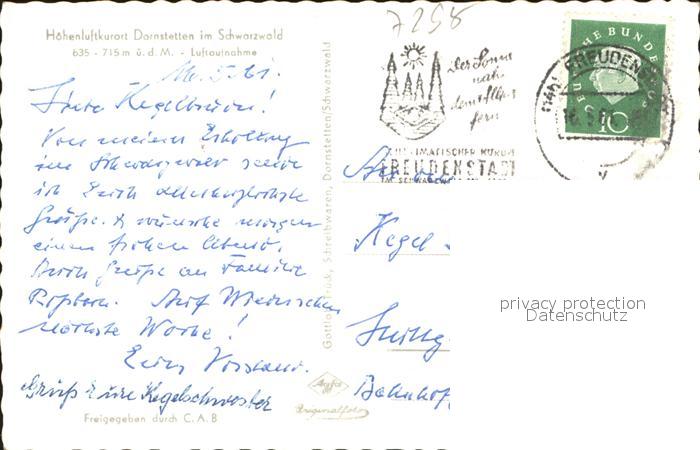 7258
Höhenluftkurort Dornstetten im Schwarzwald
635 - 715 m ü. d. M. - Luftaufnahme
Liebe Kegelbrüder!
Von meiner Erholung
im Schwarzwald sende
ich Euch allerherzlichste
Grüße & wünsche morgen
einen frohen Abend.
Auch Grüße an Familie
Auf Wiedersehen
nächste Woche!
Euer Vorstand.
Gruß Eure Kegelschwester
Freigegeben durch C. A. B
Gottlob Trück, Schreibwaren, Dornstetten/Schwarzwald
Agfa
Originalfoto
Der Sonne
nah
dem Alltag
fern
FREUDENSTADT
IM SCHWARZWALD
DEUTSCHE BUNDESPOST
10
FREUDENST
An
Kegel
Bahnhof
privacy protection
Datenschutz